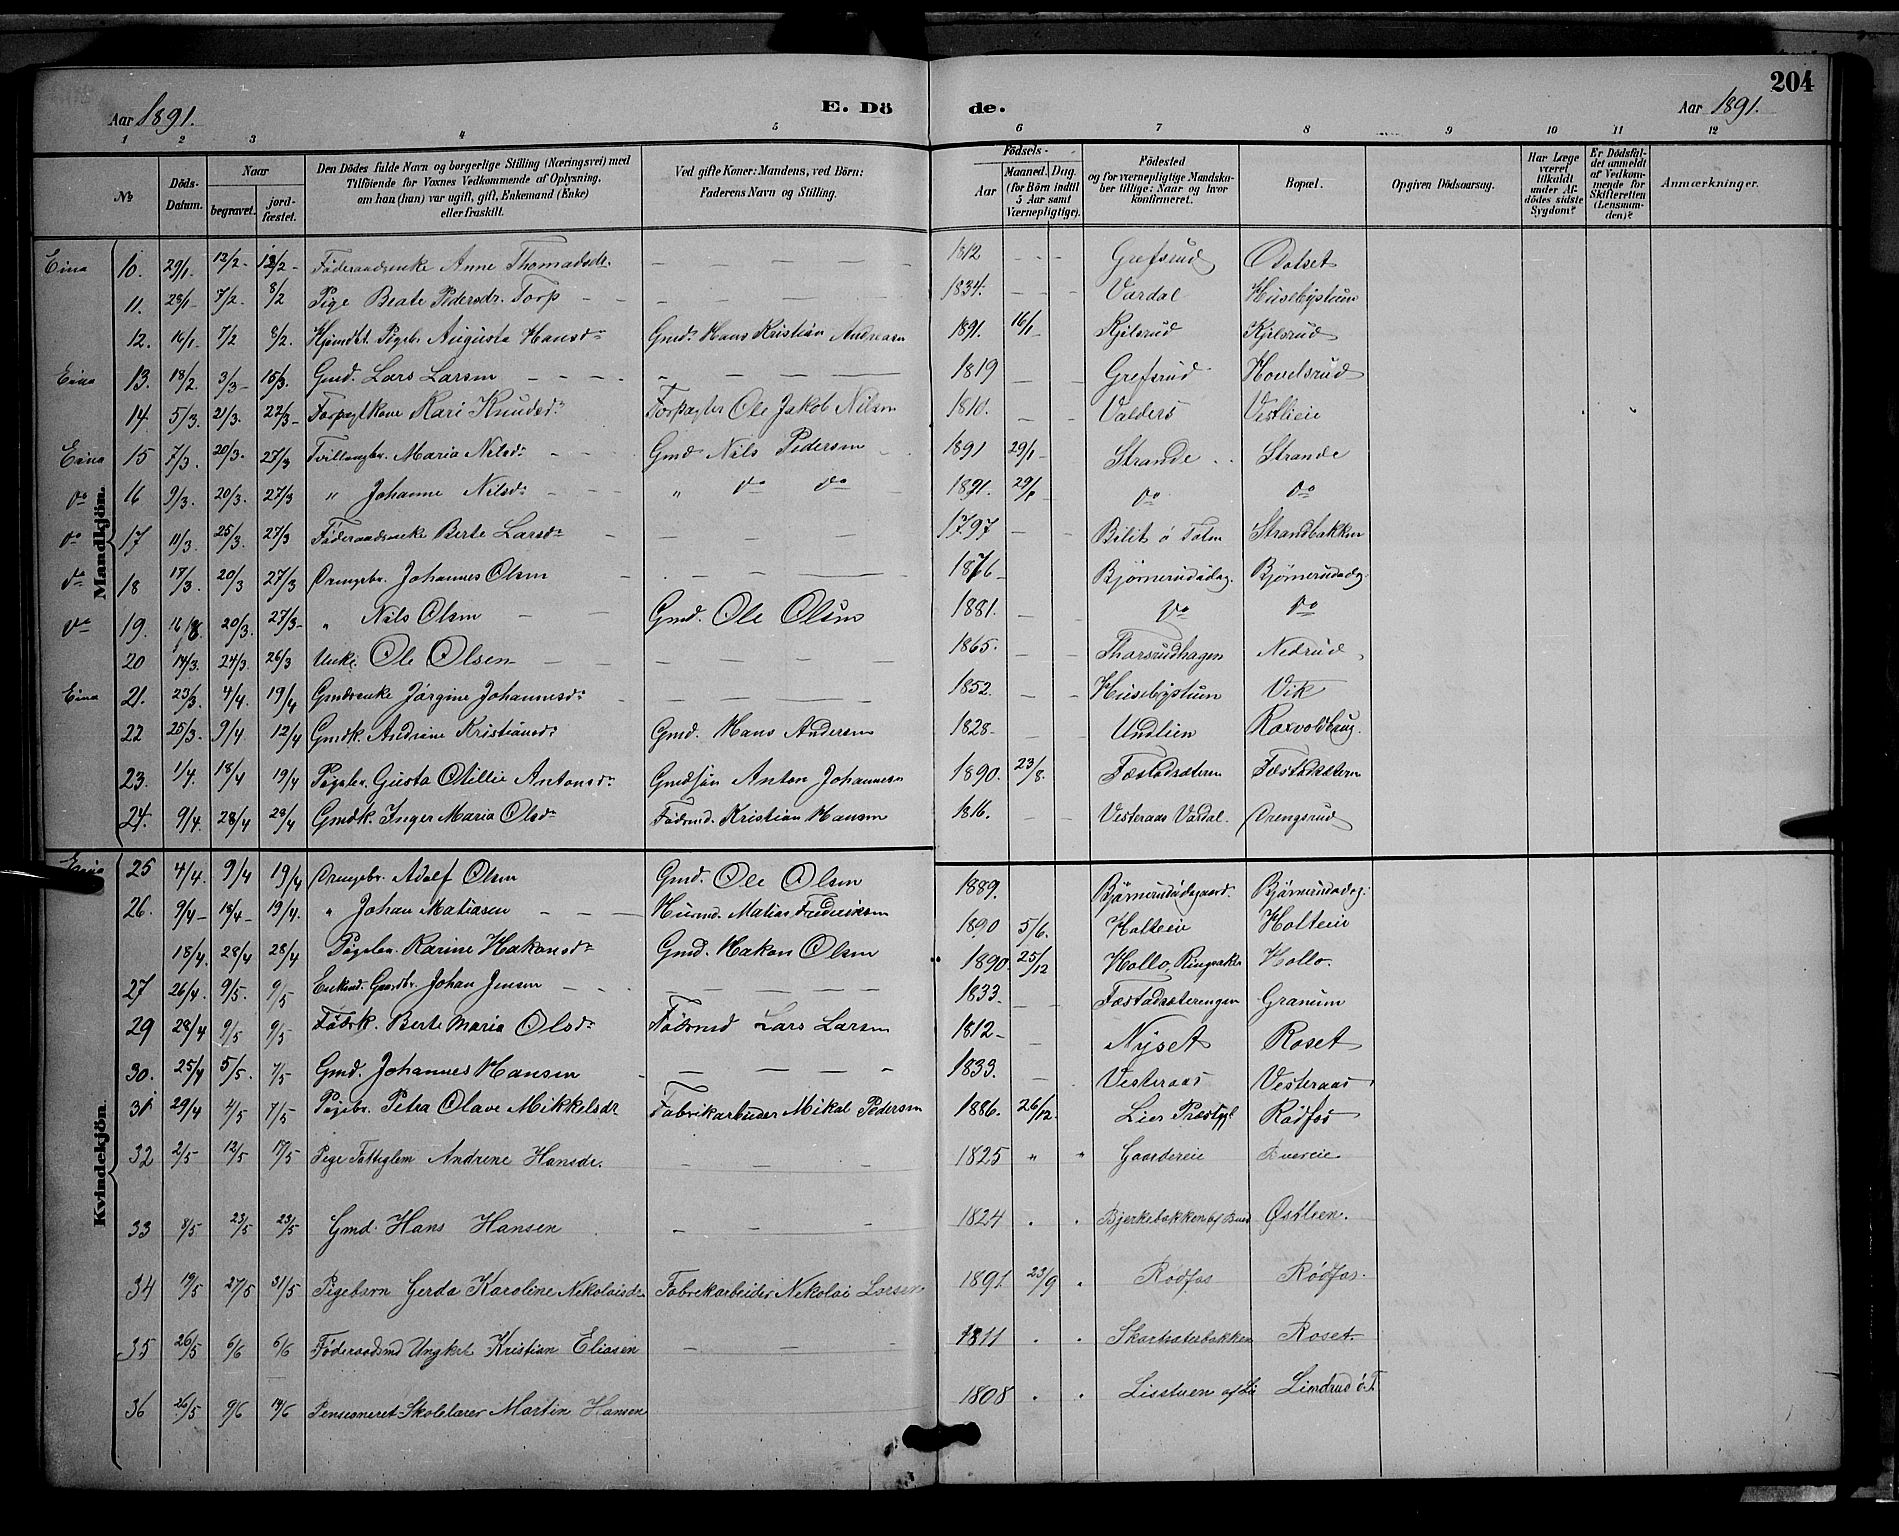 204
Aar 1891. E. Dö de. Aar 1891.
1 2 3 4 5 6 7 8 9 10 11 12
№ Döds-Datum. Naar begravet. jord-fæstet. Den Dödes fulde Navn og borgerlige Stilling (Næringsvei) med Tilföiende for Voxnes Vedkommende af Oplysning, om han (hun) var ugift, gift, Enkemand (Enke) eller fraskilt. Ved gifte Koner: Mandens, ved Börn: Faderens Navn og Stilling. Födsels- Aar Maaned. Dag. (for Börn indtil 5 Aar samt Værnepligtige). Födested og for værnepligtige Mandskaber tillige: Naar og hvor konfirmeret. Bopæl. Opgiven Dödsaarsag. Har Læge været tilkaldt under Afdödes sidste Sygdom? Er Dödsfaldet anmeldt af Vedkommende for Skifteretten (Lensmanden)? Anmærkninger.
Mandkjön.
Eina 10. 29/1 12/2 12/2 Föderaadsenke Anne Thomadsdr. — 1812 — Grefsrud Odolset
11. 28/1 7/2 8/2 Pige Beate Pedersdr. Torp — 1834. — Vardal Husebystuen
12. 16/1 7/2 8/2. Hjemdbt. Pigebr. Augusta Hansdr Gmd. Hans Kristian Andreasen 1891. 16/1 Kjilsrud Kjilsrud
Eina 13. 18/2. 3/3 15/3. Gmd. Lars Larsen — 1819 — Grefsrud Hovelsrud
14. 5/3. 21/3. 22/3 Forpagtkone Kari Knudsdr Forpagter Ole Jakob Nilsen 1810. — Valders Vestlieie
Eina 15 7/3. 20/3. 27/3 Tvillingbr. Maria Nilsdr Gmd Nils Pedersen 1891 29/1 Strande Strande
do 16 9/3. 20/3. 27/3 " Johanne Nilsdr " do do 1891. 29/1 do do
do 17 11/3. 25/3. 27/3 Föderaadsenke Berte Larsdr — 1797 — Bilit ö Toten Strandbakken
do 18 17/3. 20/3 27/3 Drengebr. Johannes Olsen — 1876 Bjørnerudsdag. Bjørnerudsdag.
do 19. 16/3. 20/3. 27/3 " Nils Olsen — Gmd. Ole Olsen 1881. — do do
20 14/3. 24/3. 26/3 Unkr. Ole Olsen — 1865. — Thorsrudhagen Nedrud
Eina 21. 23/3. 4/4. 19/4 Gmdsenke Jørgine Johannesdr — 1852. — Husebystuen Vik
22 25/3. 9/4 12/4 Gmdk. Andrine Kristiansdr Gmd. Hans Andersen 1828 — Undlien Roxvoldhaug.
23. 1/4. 18/4 19/4 Pigebr. Gusta Otillie Antonsdr Gmdsøn Anton Johannesen 1890. 23/8. Fæstadsæteren Fæstadsæteren
24. 9/4. 28/4 28/4 Gmdk. Inger Maria Olsdr Fødrmd. Kristian Hansen 1816. — Vesteraas Vardal. Drengsrud
Kvindekjön.
Eina 25 4/4. 9/4 19/4 Drengebr. Adolf Olsen Gmd. Ole Olsen 1889. Bjørnerudsdegaard. Bjørnerudsdag.
26. 9/4 18/4 19/4. " Johan Matiasen — Husmd. Matias Fredriksen 1890 5/6. Holteie Holteie
18/4. 28/4 28/4 Pigebr. Karine Hakonsdr Gmd. Hakon Olsen 1890. 25/12 Hollo, Ringsaker Hollo.
27 26/4. 9/5. 9/5 Enkmd. Gaardbr. Johan Jensen — 1833. — Fæstadsæterengen Granum
29 28/4 9/5 9/5 Födrk. Berte Maria Olsdr Födrmd Lars Larsen 1812 — Nyset Roset
30. 25/4 5/5. 7/5 Gmd. Johannes Hansen — 1833. — Vesteraas Vesteraas
31 29/4 4/5 7/5 Pigebr. Petra Olave Mikkelsdr Fabrikarbeider Mikal Pedersen 1886. 26/12. Lier Præstgl Rödfos
32 2/5 12/5 17/5 Pige Fattiglem Andrine Hansdr. — 1825 " " Gaardereie
33 8/5 23/5 23/5 Gmd. Hans Hansen — 1824 Bjerkebakken af Østlien.
34 19/5 27/5 31/5 Pigebarn Gerda Karoline Nikolaisdr Fabrikarbeider Nikolai Larsen 1891 23/9 " Rødfos Rødfos.
35 26/5 6/6 6/6 Føderaadsmd Ungkrl Kristian Eliasen — 1811 Skartsæterbakken Roset
36 26/5 9/6 14/6 Pensioneret Skolelærer Martin Hansen 1808 Lisstuen af Li Lindrud ö. T.